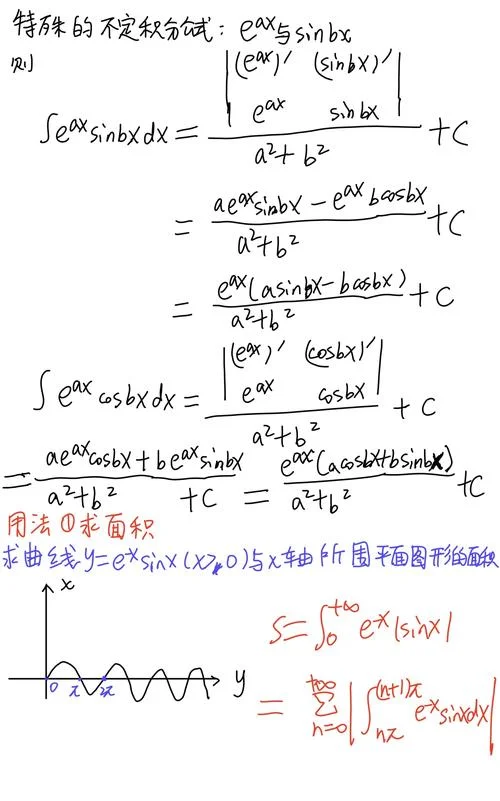 特殊的不定积分公式：e^{ax}与sinbx
则
∫e^{ax}sinbxdx = \frac{\begin{vmatrix}(e^{ax})' & (sinbx)' \\ e^{ax} & sinbx\end{vmatrix}}{a^2+b^2} + C
= \frac{ae^{ax}sinbx - e^{ax}bcosbx}{a^2+b^2} + C
= \frac{e^{ax}(asinbx - bcosbx)}{a^2+b^2} + C
∫e^{ax}cosbxdx = \frac{\begin{vmatrix}(e^{ax})' & (cosbx)' \\ e^{ax} & cosbx\end{vmatrix}}{a^2+b^2} + C
= \frac{ae^{ax}cosbx + be^{ax}sinbx}{a^2+b^2} + C = \frac{e^{ax}(acosbx+bsinbx)}{a^2+b^2} + C
用法①求面积
求曲线y=e^{-x}sinx(x≥0)与x轴所围平面图形的面积
x
0 π 2π y
S = ∫_0^{+∞} e^{-x}|sinx|
= \sum_{n=0}^{+∞} |∫_{nπ}^{(n+1)π} e^{-x}sinxdx|